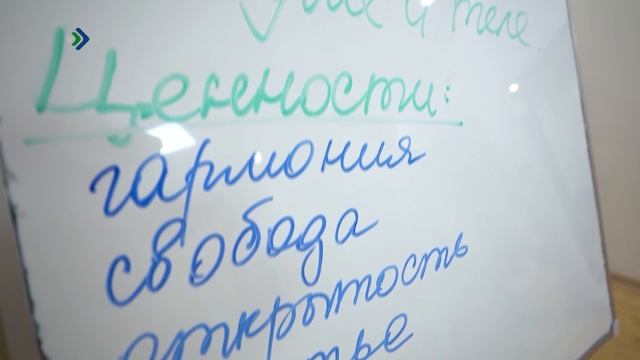 и теле
Ценности:
гармония
свобода
открытость